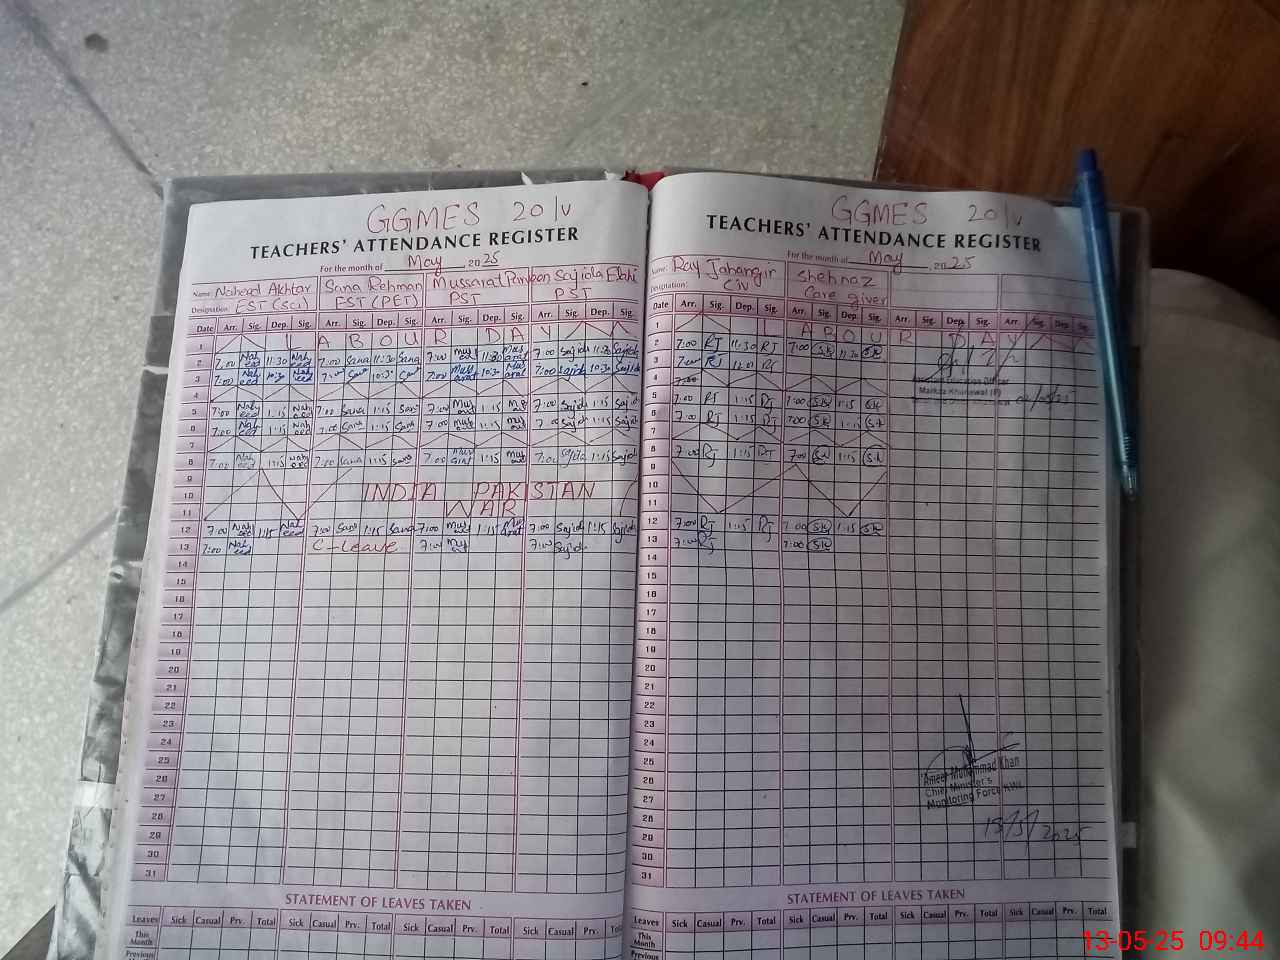 GGMES 20/V
TEACHERS' ATTENDANCE REGISTER
For the month of May 2025
Name: Naheed Akhtar Sana Rehman Mussarat Parveen Sajida Elahi
Designation: EST (Sci) EST (PET) PST PST
Date Arr. Sig. Dep. Sig. Arr. Sig. Dep. Sig. Arr. Sig. Dep. Sig. Arr. Sig. Dep. Sig.
1 LABOUR DAY
2 7:00 Naheed 11:30 Naheed 7:00 Sana 11:30 Sana 7:00 11:30 7:00 Sajida 11:30 Sajida
3 7:00 Naheed 10:30 Naheed 7:00 Sana 10:30 Sana 7:00 10:30 7:00 Sajida 10:30 Sajida
4
5 7:00 Naheed 1:15 Naheed 7:00 Sana 1:15 Sana 7:00 1:15 7:00 Sajida 1:15 Sajida
6 7:00 Naheed 1:15 Naheed 7:00 Sana 1:15 Sana 7:00 1:15 7:00 Sajida 1:15 Sajida
7
8 7:00 Naheed 1:15 Naheed 7:00 Sana 1:15 Sana 7:00 1:15 7:00 Sajida 1:15 Sajida
9
10 INDIA PAKISTAN
11 WAR
12 7:00 Naheed 1:15 Naheed 7:00 Sana 1:15 Sana 7:00 1:15 7:00 Sajida 1:15 Sajida
13 7:00 Naheed C-Leave 7:00 7:00 Sajida
14
15
16
17
18
19
20
21
22
23
24
25
26
27
28
29
30
31
STATEMENT OF LEAVES TAKEN
Leaves Sick Casual Prv. Total Sick Casual Prv. Total Sick Casual Prv. Total Sick Casual Prv.
This Month
Previous
GGMES 20/V
TEACHERS' ATTENDANCE REGISTER
For the month of May 2025
Name: Ray Jahangir Shehnaz
Designation: CIV Care giver
Date Arr. Sig. Dep. Sig. Arr. Sig. Dep. Sig. Arr. Sig. Dep. Sig. Arr. Sig. Dep. Sig.
1 LABOUR DAY
2 7:00 RJ 11:30 RJ 7:00 SK 11:30 SK
3 7:00 RJ RJ
4 7:00
5 7:00 RJ 1:15 RJ 7:00 SK 1:15 SK
6 7:00 RJ 1:15 RJ 7:00 SK 1:15 SK
7
8 7:00 RJ 1:15 RJ 7:00 SK 1:15 SK
9
10
11
12 7:00 RJ 1:15 RJ 7:00 SK 1:15 SK
13 7:00 RJ 7:00 SK
14
15
16
17
18
19
20
21
22
23
24
25
26
27
28
29
30
31
Ameer Muhammad Khan
Chief Minister's
Monitoring Force KWL
13/5/2025
STATEMENT OF LEAVES TAKEN
Leaves Sick Casual Prv. Total Sick Casual Prv. Total Sick Casual Prv. Total Sick Casual Prv. Total
This Month
Previous
13-05-25 09:44